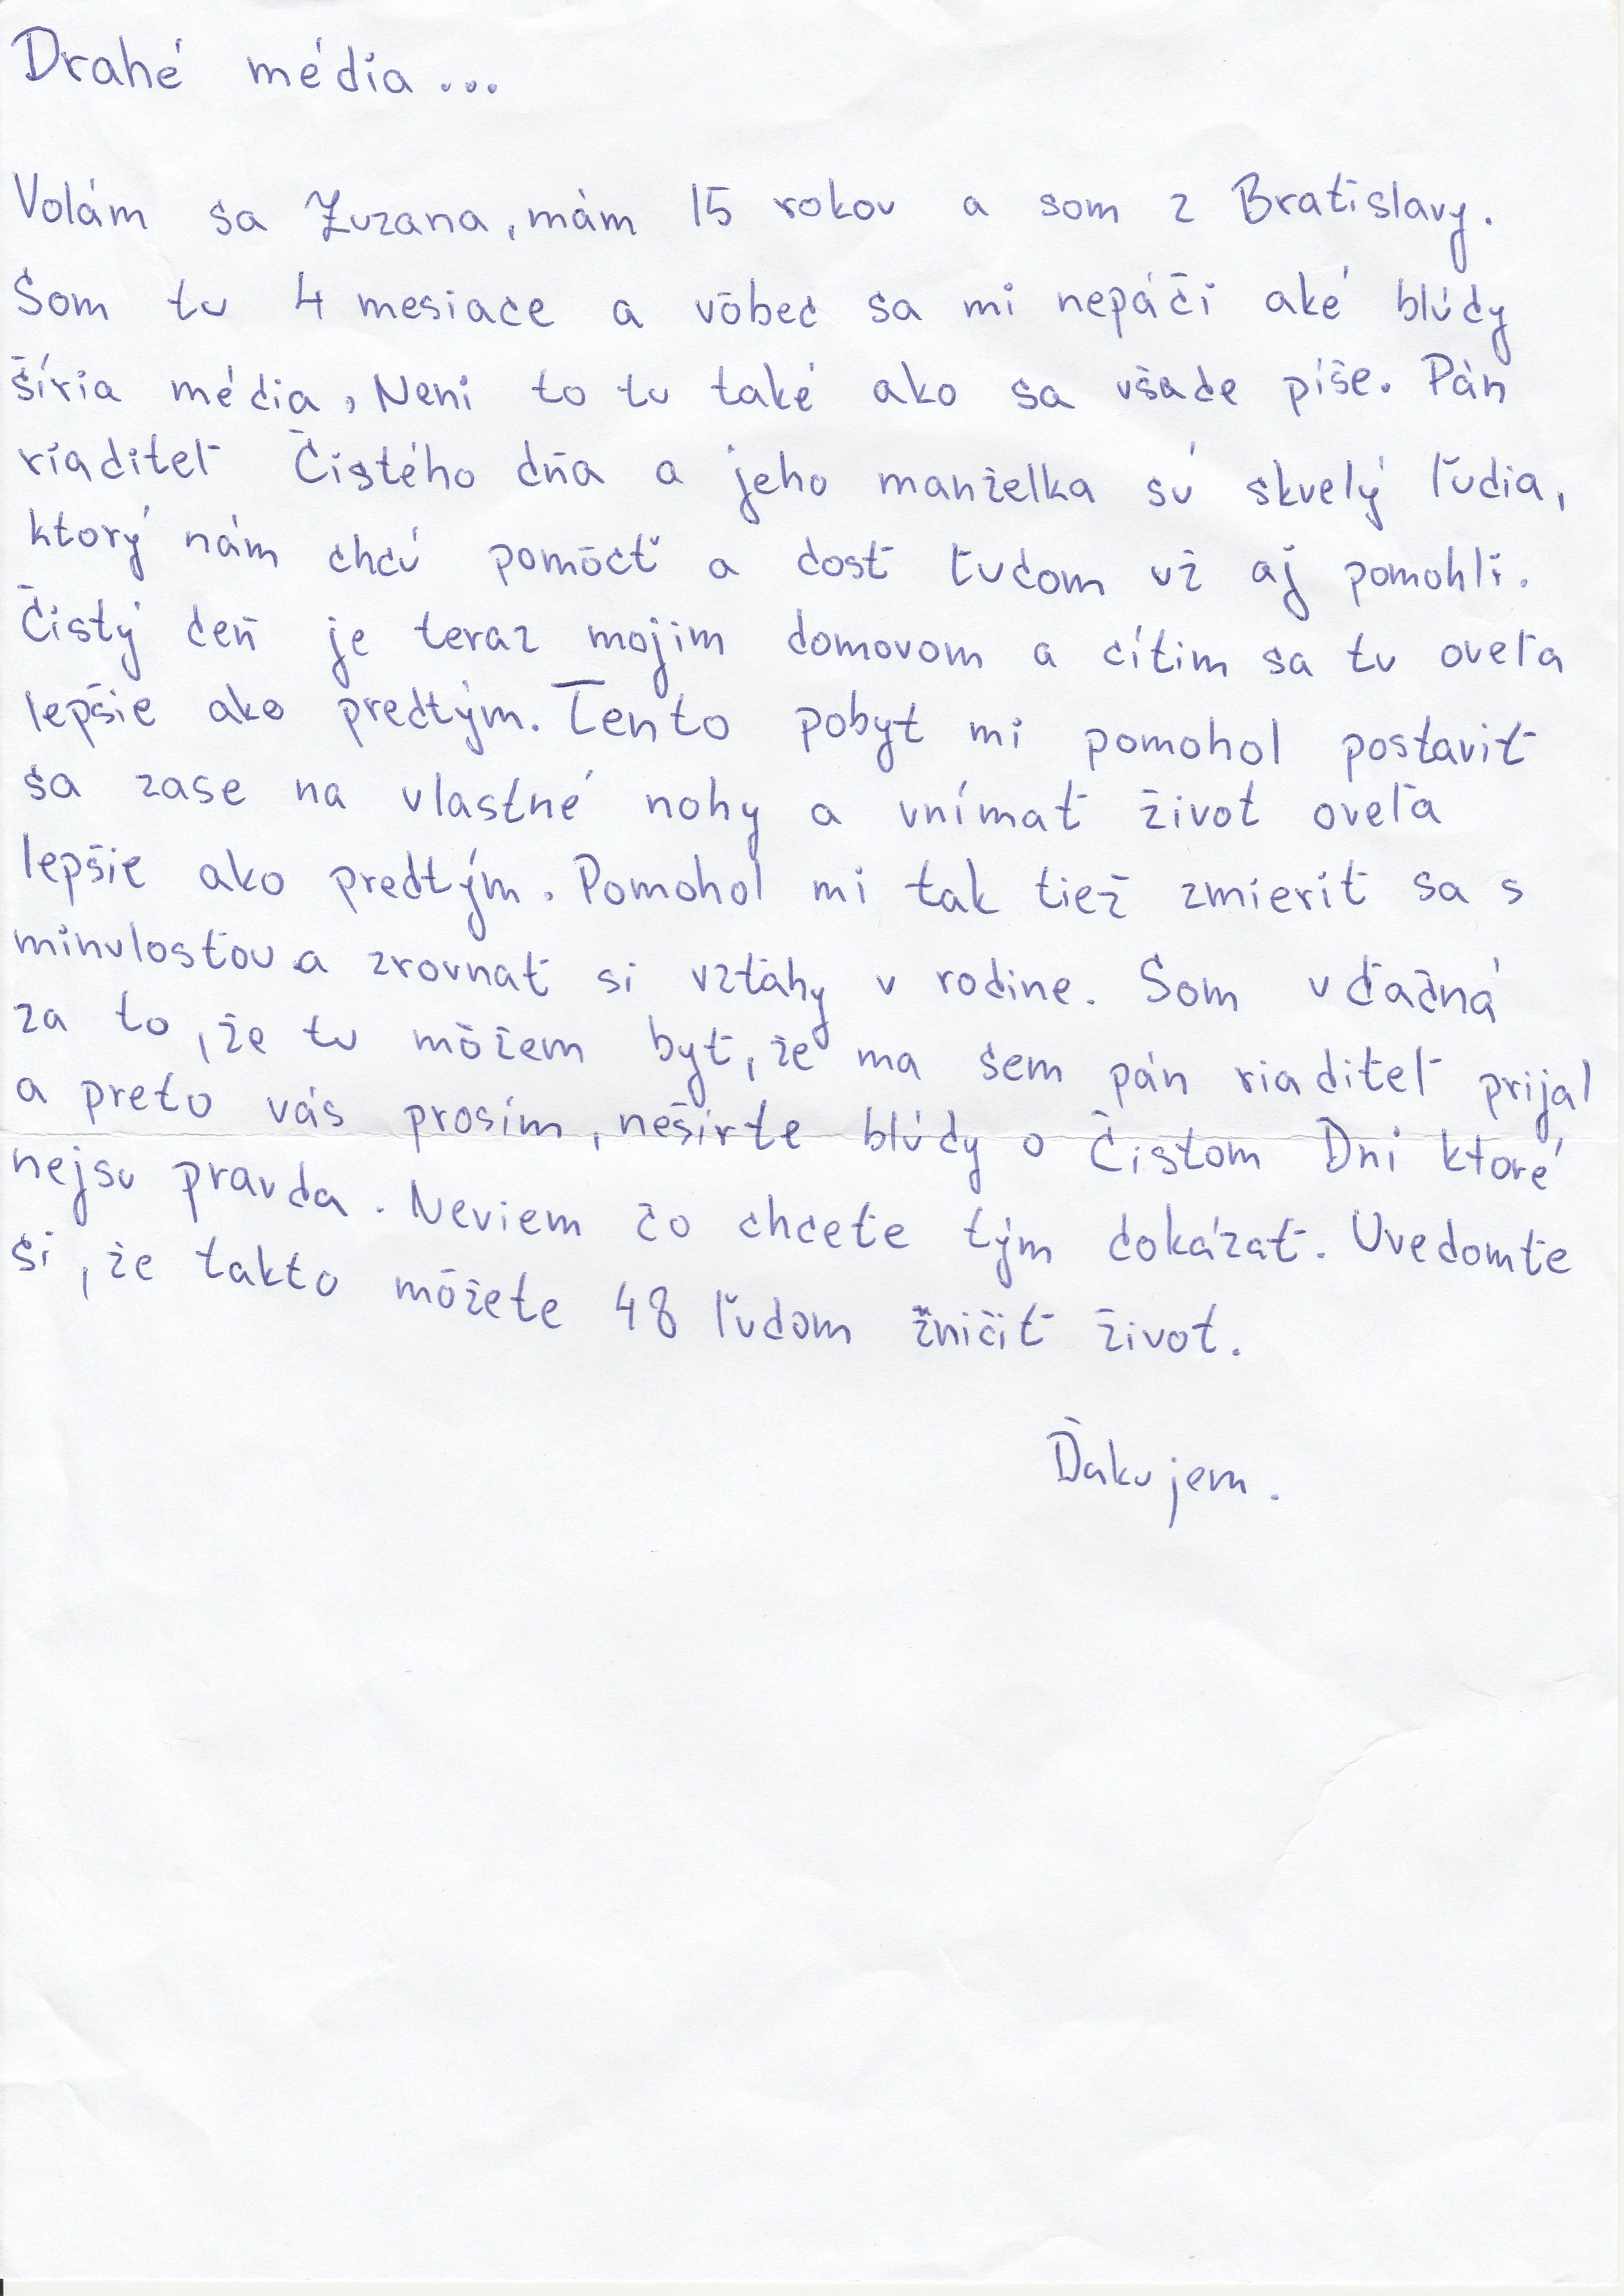 Drahé média...
Volám sa Zuzana, mám 15 rokov a som z Bratislavy.
Som tu 4 mesiace a vôbec sa mi nepáči aké blúdy
šíria média, Neni to tu také ako sa všade píše. Pán
riaditeľ Čistého dňa a jeho manželka sú skvelý ľudia,
ktorý nám chcú pomôcť a dosť ľuďom už aj pomohli.
Čistý deň je teraz mojim domovom a cítim sa tu oveľa
lepšie ako predtým. Tento pobyt mi pomohol postaviť
sa zase na vlastné nohy a vnímať život oveľa
lepšie ako predtým. Pomohol mi tak tiež zmieriť sa s
minulosťou a zrovnať si vzťahy v rodine. Som vďačná
za to, že tu môžem byť, že ma sem pán riaditeľ prijal
a preto vás prosím, nešírte blúdy o Čistom Dni ktoré
nejsu pravda. Neviem čo chcete tým dokázať. Uvedomte
si, že takto môžete 48 ľuďom zničiť život.
Ďakujem.